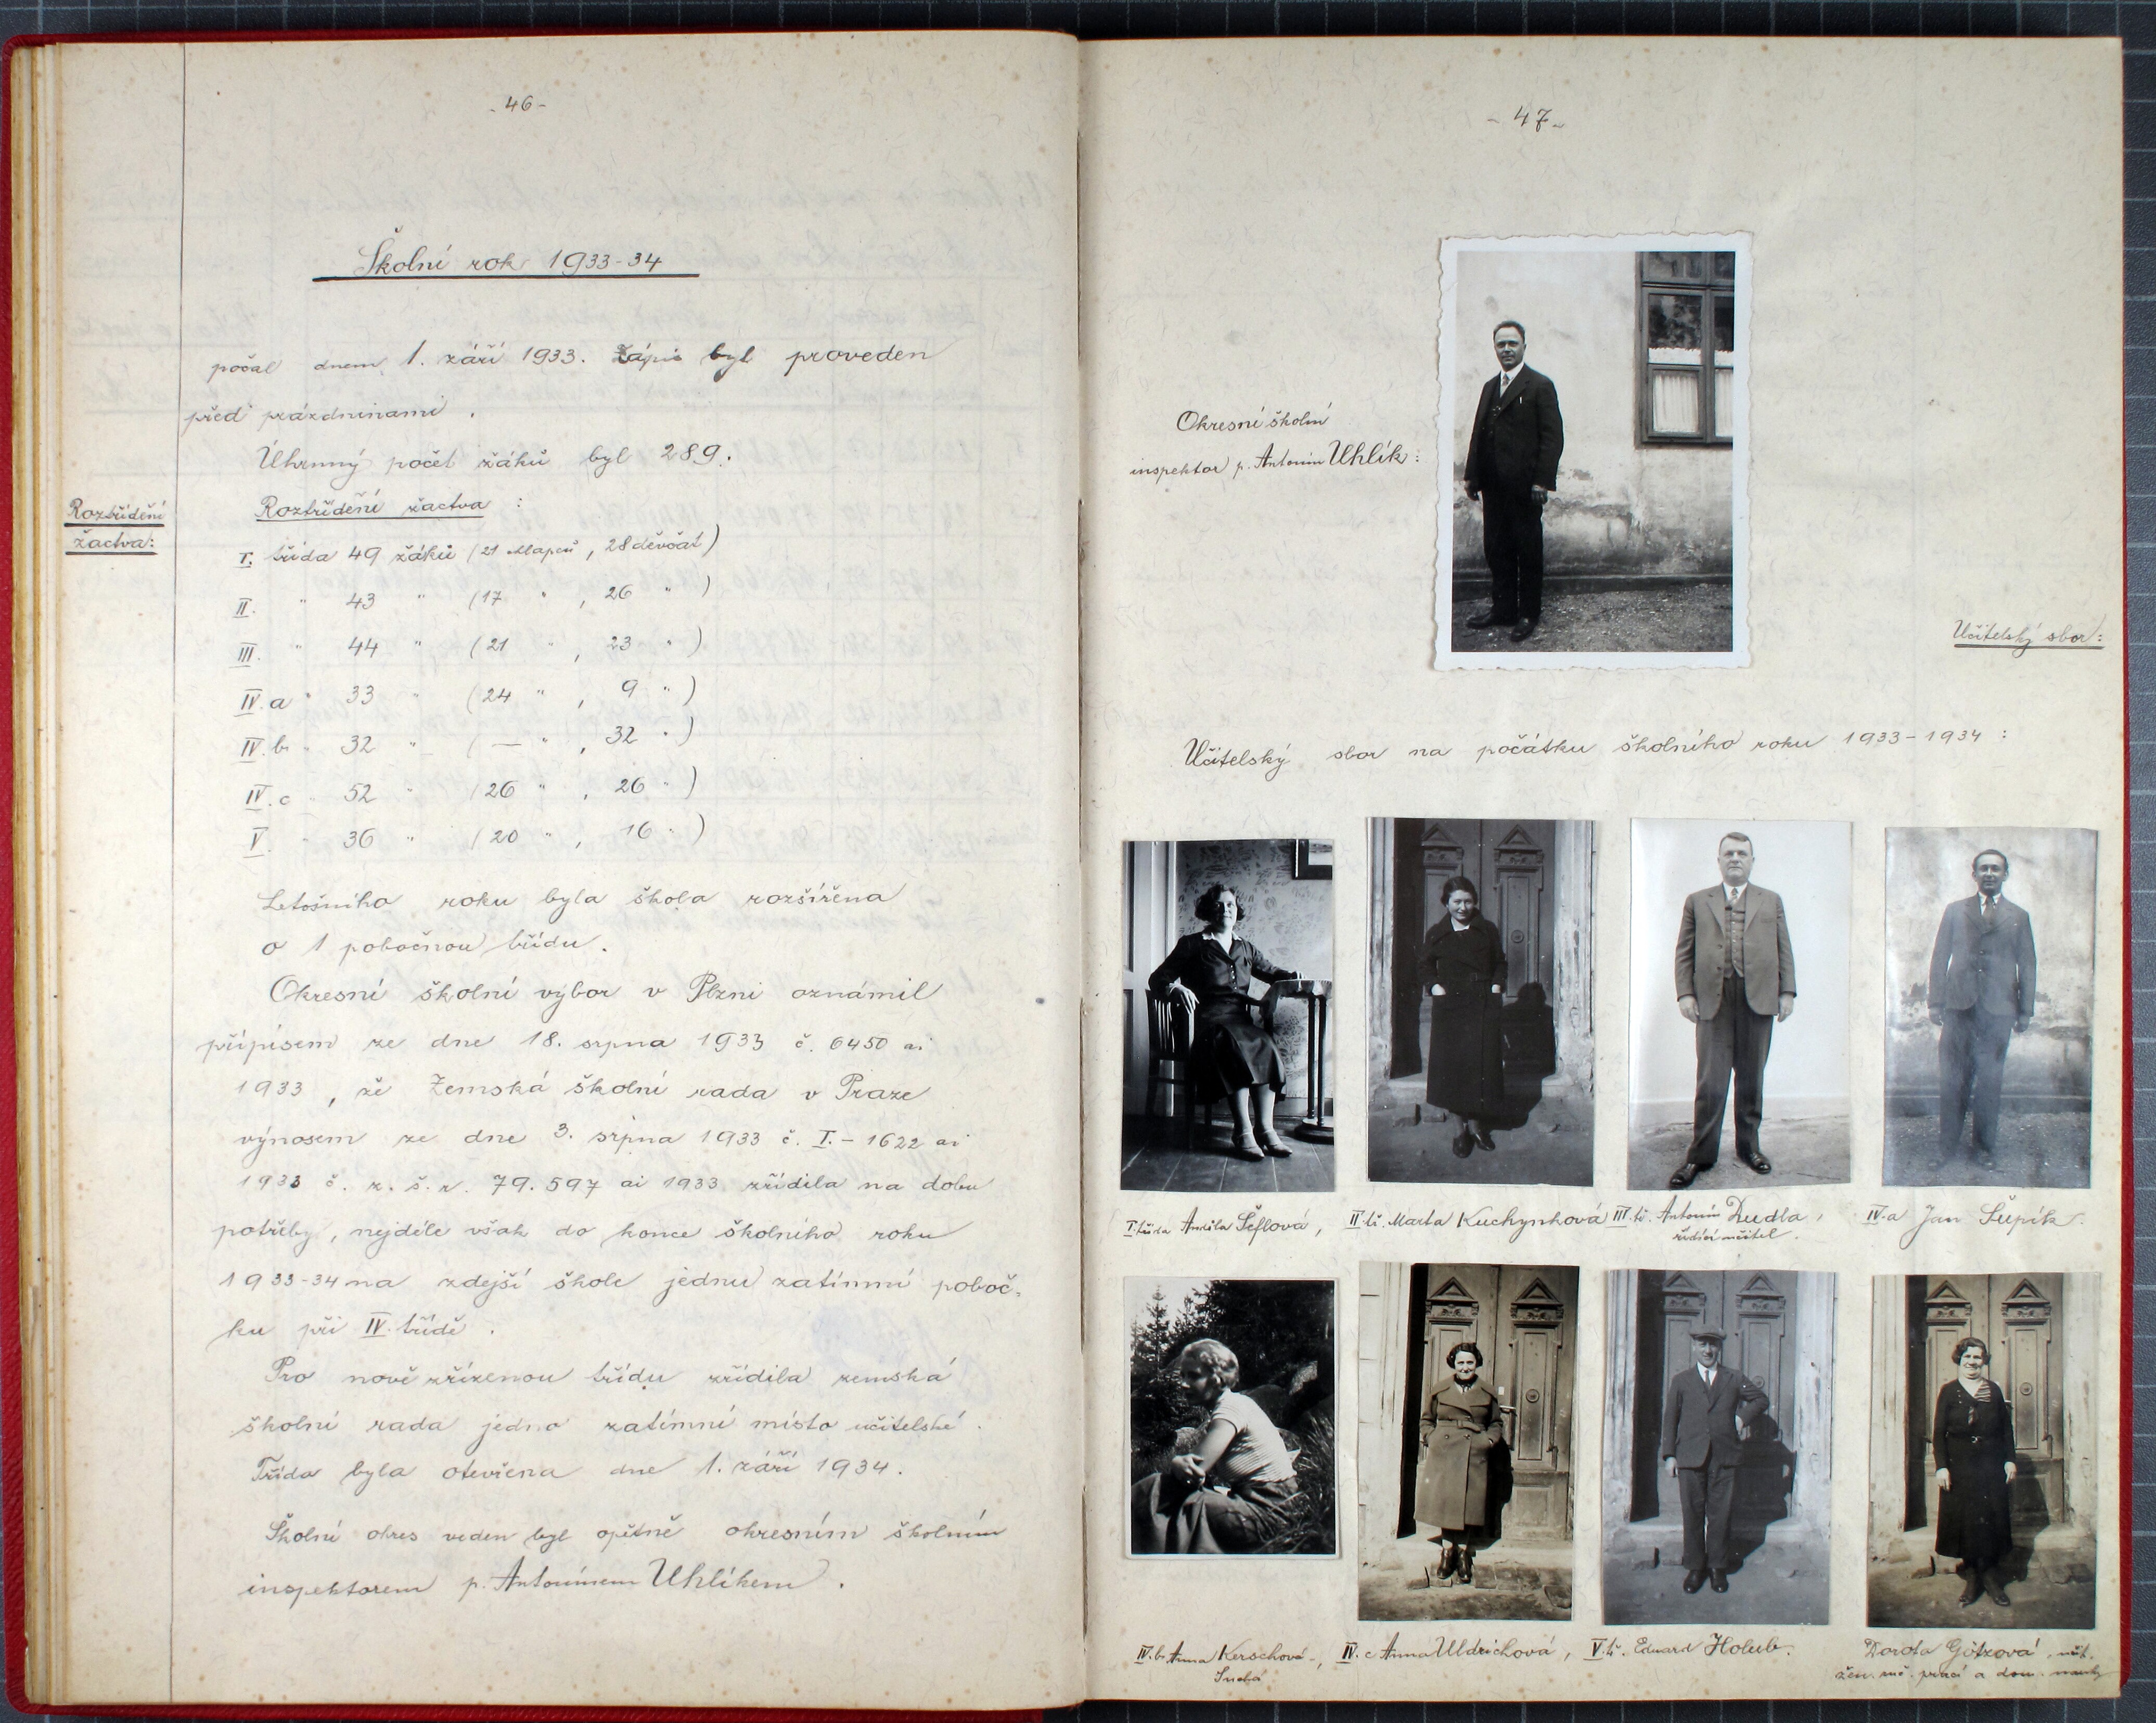 - 46 -
Školní rok 1933-34
počal dnem 1. září 1933. Zápis byl proveden
před prázdninami.
Úhrnný počet žáků byl 289.
Roztřídění
žactva:
Roztřídění žactva :
I. třída 49 žáků (21 chlapců, 28 děvčat)
II. " 43 " (17 " , 26 " )
III. " 44 " (21 " , 23 " )
IV.a " 33 " (24 " , 9 " )
IV.b " 32 " ( — " , 32 " )
IV.c " 52 " (26 " , 26 " )
V. " 36 " (20 " , 16 " )
Letošního roku byla škola rozšířena
o 1 pobočnou třídu.
Okresní školní výbor v Plzni oznámil
přípisem ze dne 18. srpna 1933 č. 6450 ai
1933, že Zemská školní rada v Praze
výnosem ze dne 3. srpna 1933 č. I. - 1622 ai
1933 č. z. š. r. 79.597 ai 1933 zřídila na dobu
potřeby, nejdéle však do konce školního roku
1933-34 na zdejší škole jednu zatímní poboč-
ku při IV. třídě.
Pro nově zřízenou třídu zřídila zemská
školní rada jedno zatímní místo učitelské.
Třída byla otevřena dne 1. září 1934.
Školní okres veden byl opětně okresním školním
inspektorem p. Antonínem Uhlíkem.
- 47 -
Okresní školní
inspektor p. Antonín Uhlík:
Učitelský sbor:
Učitelský sbor na počátku školního roku 1933-1934 :
I. třída Anděla Šeflová, II. tř. Marta Kuchynková III. tř. Antonín Dudla, IV.a Jan Šupík.
řídící učitel.
IV.b Anna Kerschová-, IV.c Anna Uldrichová, V. tř. Eduard Holub. Dorota Götzová, učit.
Suchá žen. ruč. prací a dom. nauky